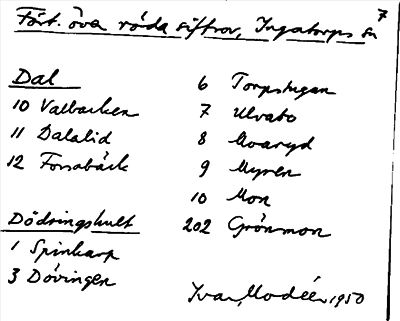 Fört. över röda siffror, Ingatorps sn
7
Dal
10 Valbacken
11 Dalalid
12 Forsabäck
Dödringshult
1 Spinkarp
3 Dövingen
6 Torpstugan
7 Ulvabo
8 Moaryd
9 Myren
10 Mon
202 Grönmon
Ivar Modéer 1950